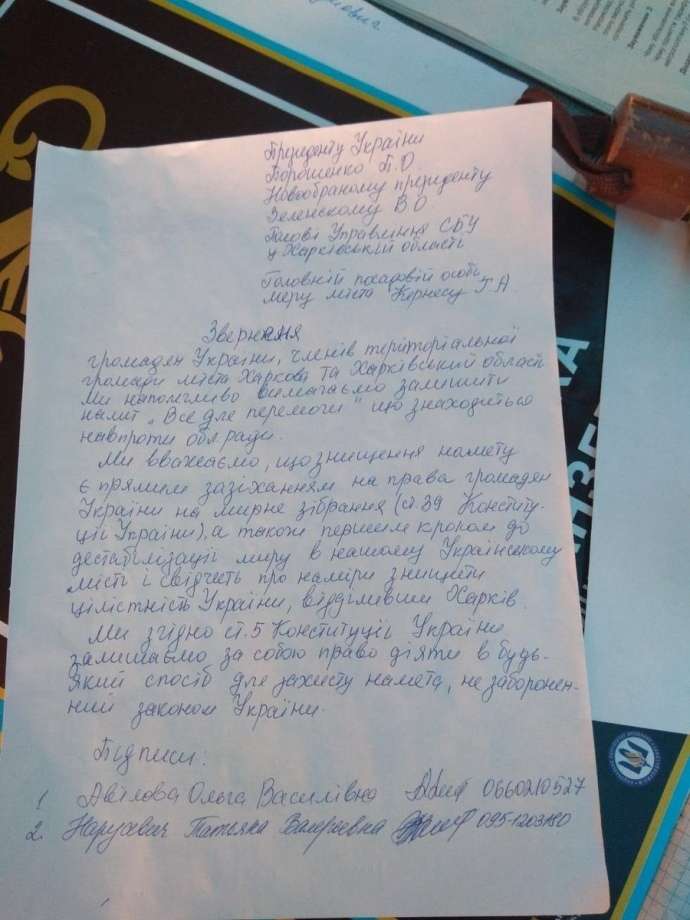 Президенту України
Порошенко П.О.
Новообраному президенту
Зеленському В О
Голові Управління СБУ
у Харківській області
Головній посадовій особі
меру міста Кернесу Г А
Звернення
громадян України, членів територіальної
громади міста Харкова та Харківський області
Ми наполегливо вимагаємо залишити
намет „Все для перемоги" що знаходиться
навпроти облради.
Ми вважаємо, що знищення намету
є прямим зазіханням на права громадян
України на мирне зібрання (ст.39 Конститу-
ції України), а також першим кроком до
дестабілізації миру в нашому Українському
місті і свідчеть про наміри знищити
цілістність України, відділивши Харків.
Ми згідно ст.5 Конституції України
залишаємо за собою право діяти в будь-
який спосіб для захисту намета, не заборонен-
ний законом України.
Підписи:
1. Авілова Ольга Василівна 0660210527
2. Татьяна Валериевна
ЗБ